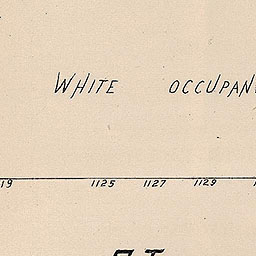 WHITE OCCUPAN
19 1125 1127 1129